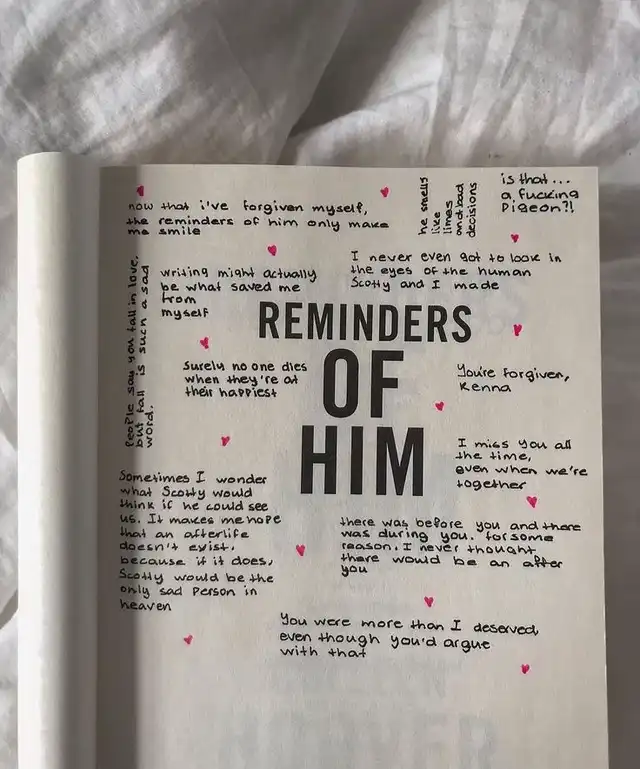 now that i've forgiven myself,
the reminders of him only make
me smile
he smells
like
limes
and bad
decisions
is that...
a fucking
Pigeon?!
People say you fall in love,
but fall is such a sad
word.
writing might actually
be what saved me
from
myself
I never even got to look in
the eyes of the human
Scotty and I made
REMINDERS
OF
HIM
Surely no one dies
when they're at
their happiest
You're forgiven,
Kenna
I miss you all
the time,
even when we're
together
Sometimes I wonder
what Scotty would
think if he could see
us. It makes me hope
that an afterlife
doesn't exist,
because if it does,
Scotty would be the
only sad person in
heaven
there was before you and there
was during you. for some
reason, I never thought
there would be an after
you
You were more than I deserved,
even though you'd argue
with that